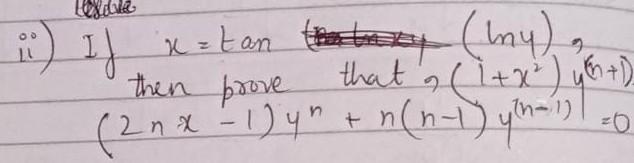 ii) If x = tan (ln y),
then prove that, (1+x²) y^(n+1)
(2nx - 1) yⁿ + n(n-1) y^(n-1) = 0